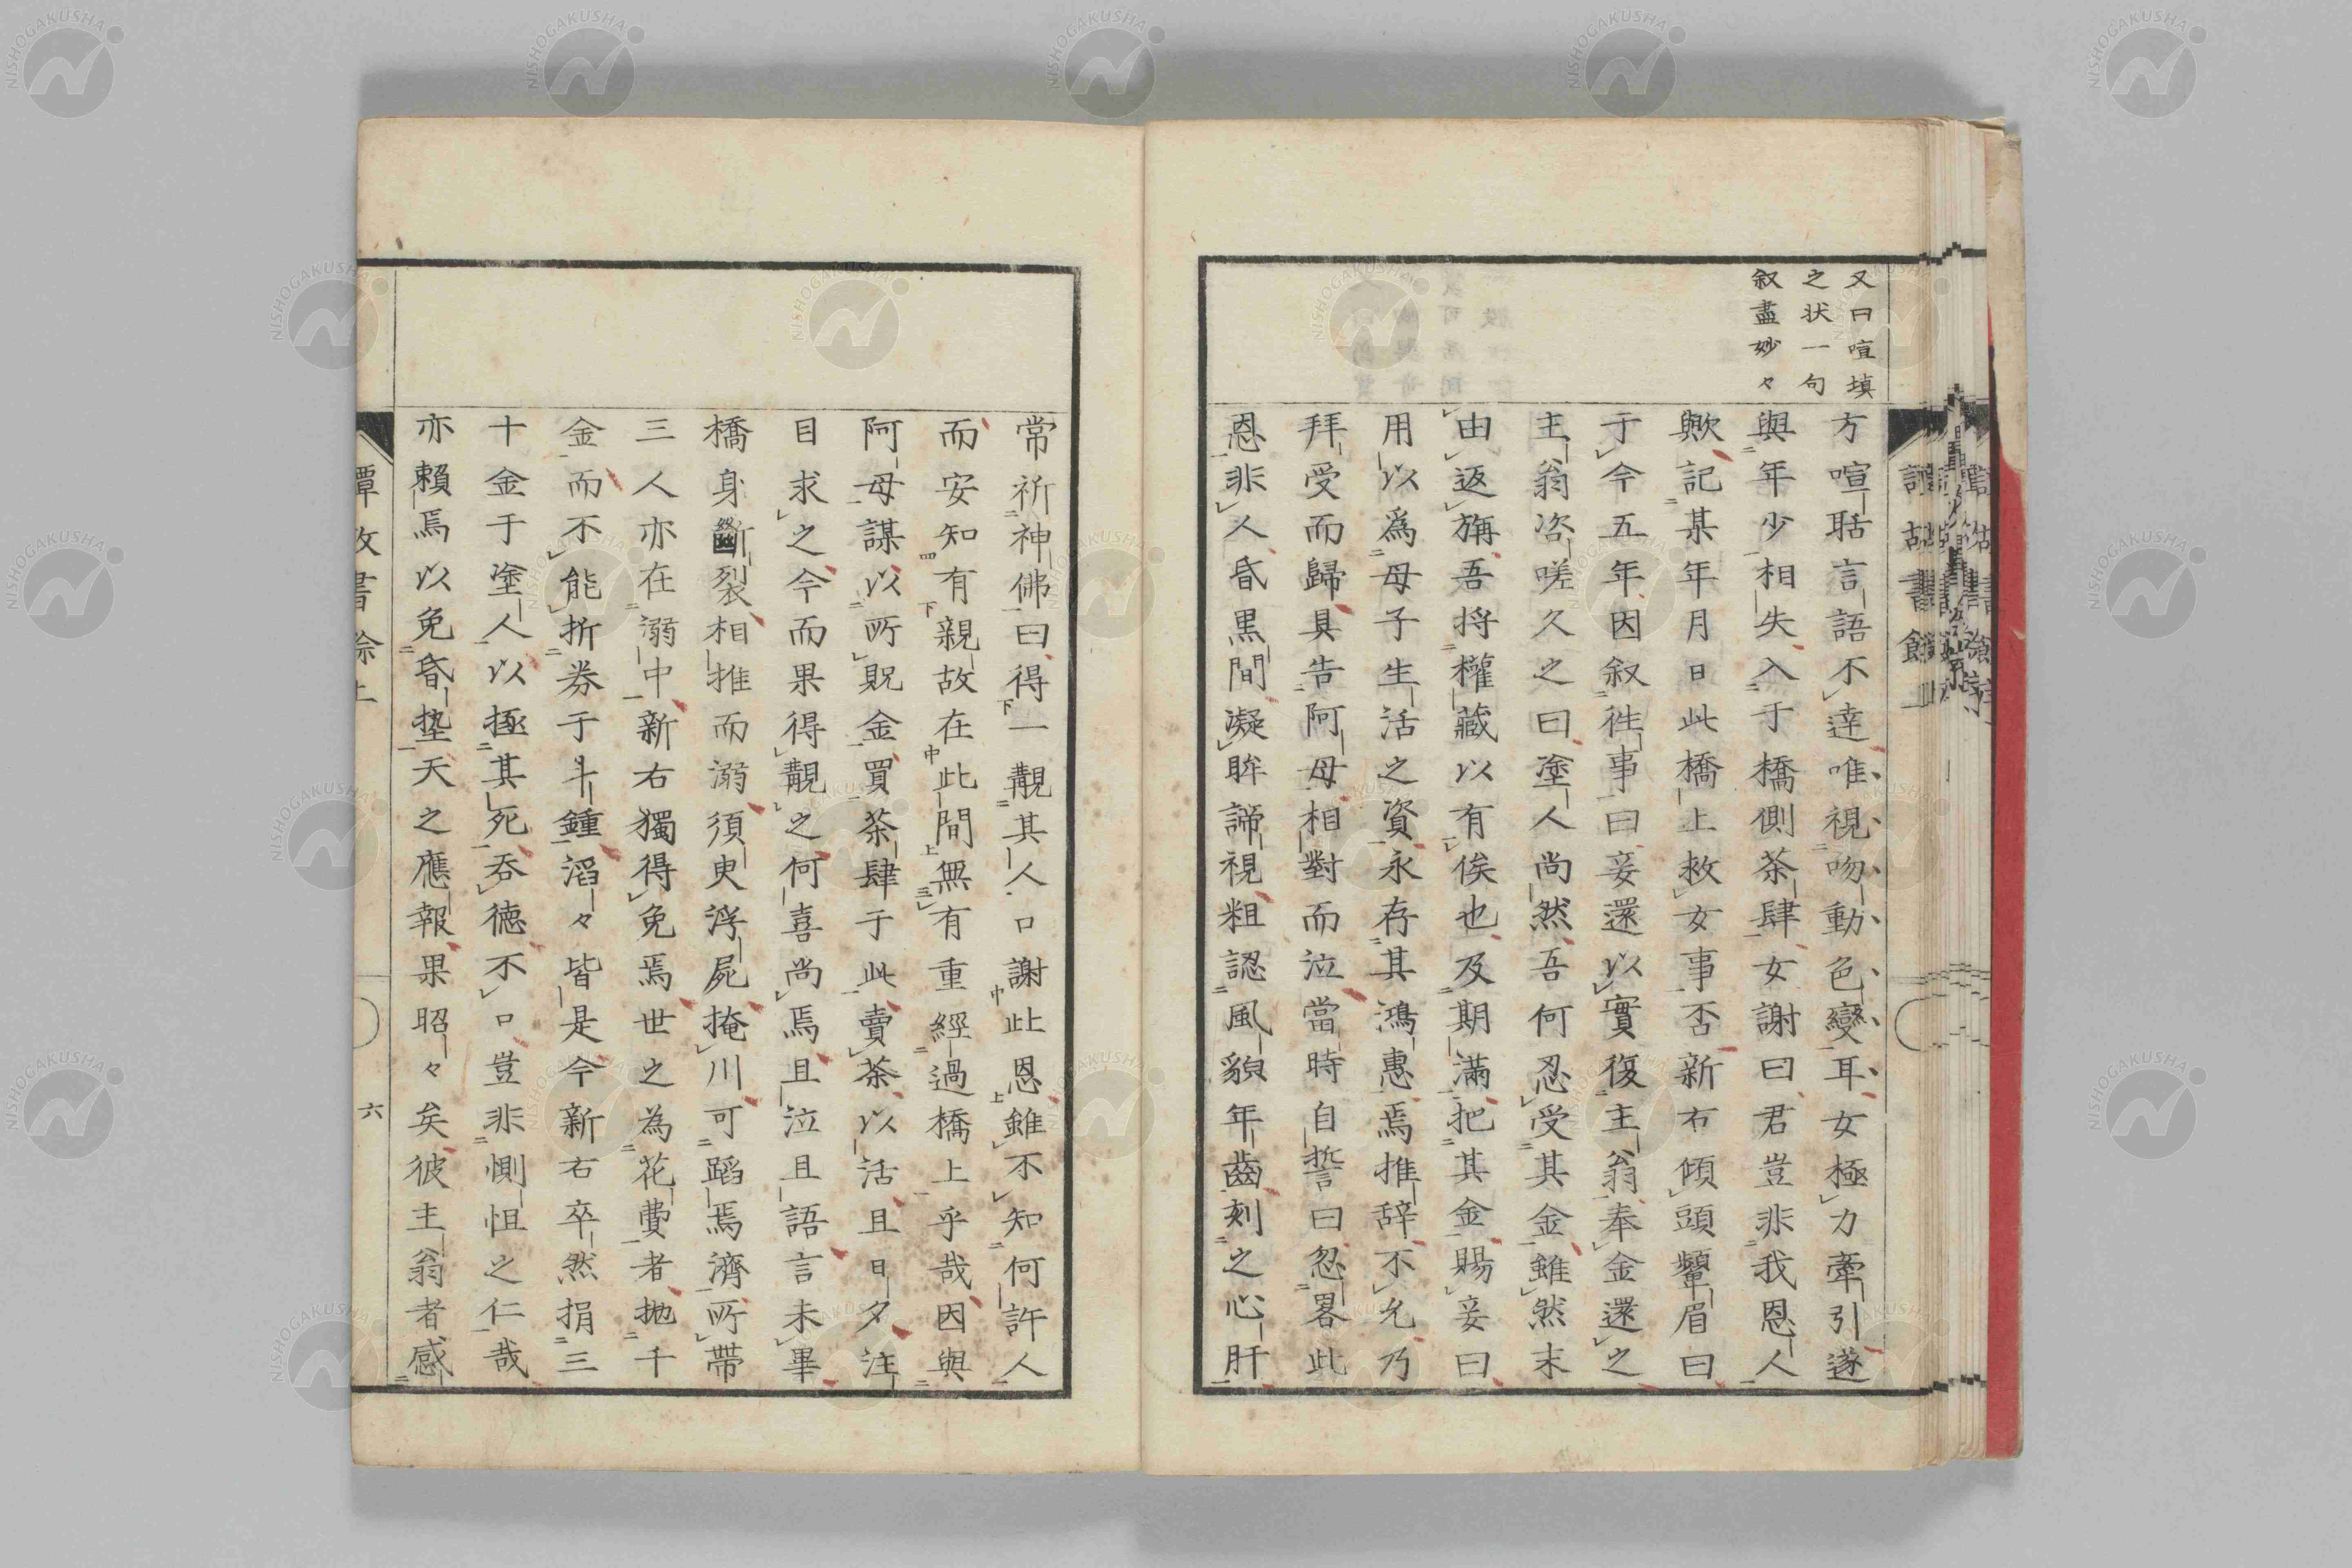 又曰喧塡
之状一句
叙盡妙々
方喧聒言語不達唯視吻動色變耳女極力牽引遂
與年少相失入于橋側茶肆女謝曰君豈非我恩人
歟記某年月日此橋上救女事否新右傾頭顰眉曰
于今五年因叙徃事曰妾還以實復主翁奉金還之
主翁咨嗟久之曰塗人尚然吾何忍受其金雖然未
由返旃吾将權藏以有俟也及期滿把其金賜妾曰
用以爲母子生活之資永存其鴻惠焉推辞不允乃
拜受而歸具告阿母相對而泣當時自誓曰忽畧此
恩非人昏黒間凝眸諦視粗認風貌年齒刻之心肝
常祈神佛曰得一覯其人口謝此恩雖不知何許人
而安知有親故在此間無有重經過橋上乎哉因與
阿母謀以所貺金買茶肆于此賣茶以活且日夕注
目求之今而果得覯之何喜尚焉且泣且語言未畢
橋身斷裂相推而溺須臾浮屍掩川可蹈焉濟所帶
三人亦在溺中新右獨得免焉世之為花費者抛千
金而不能折券于斗鍾滔々皆是今新右卒然捐三
十金于塗人以拯其死呑德不口豈非惻怛之仁哉
亦賴焉以免昏墊天之應報果昭々矣彼主翁者感
譚故書餘上
六